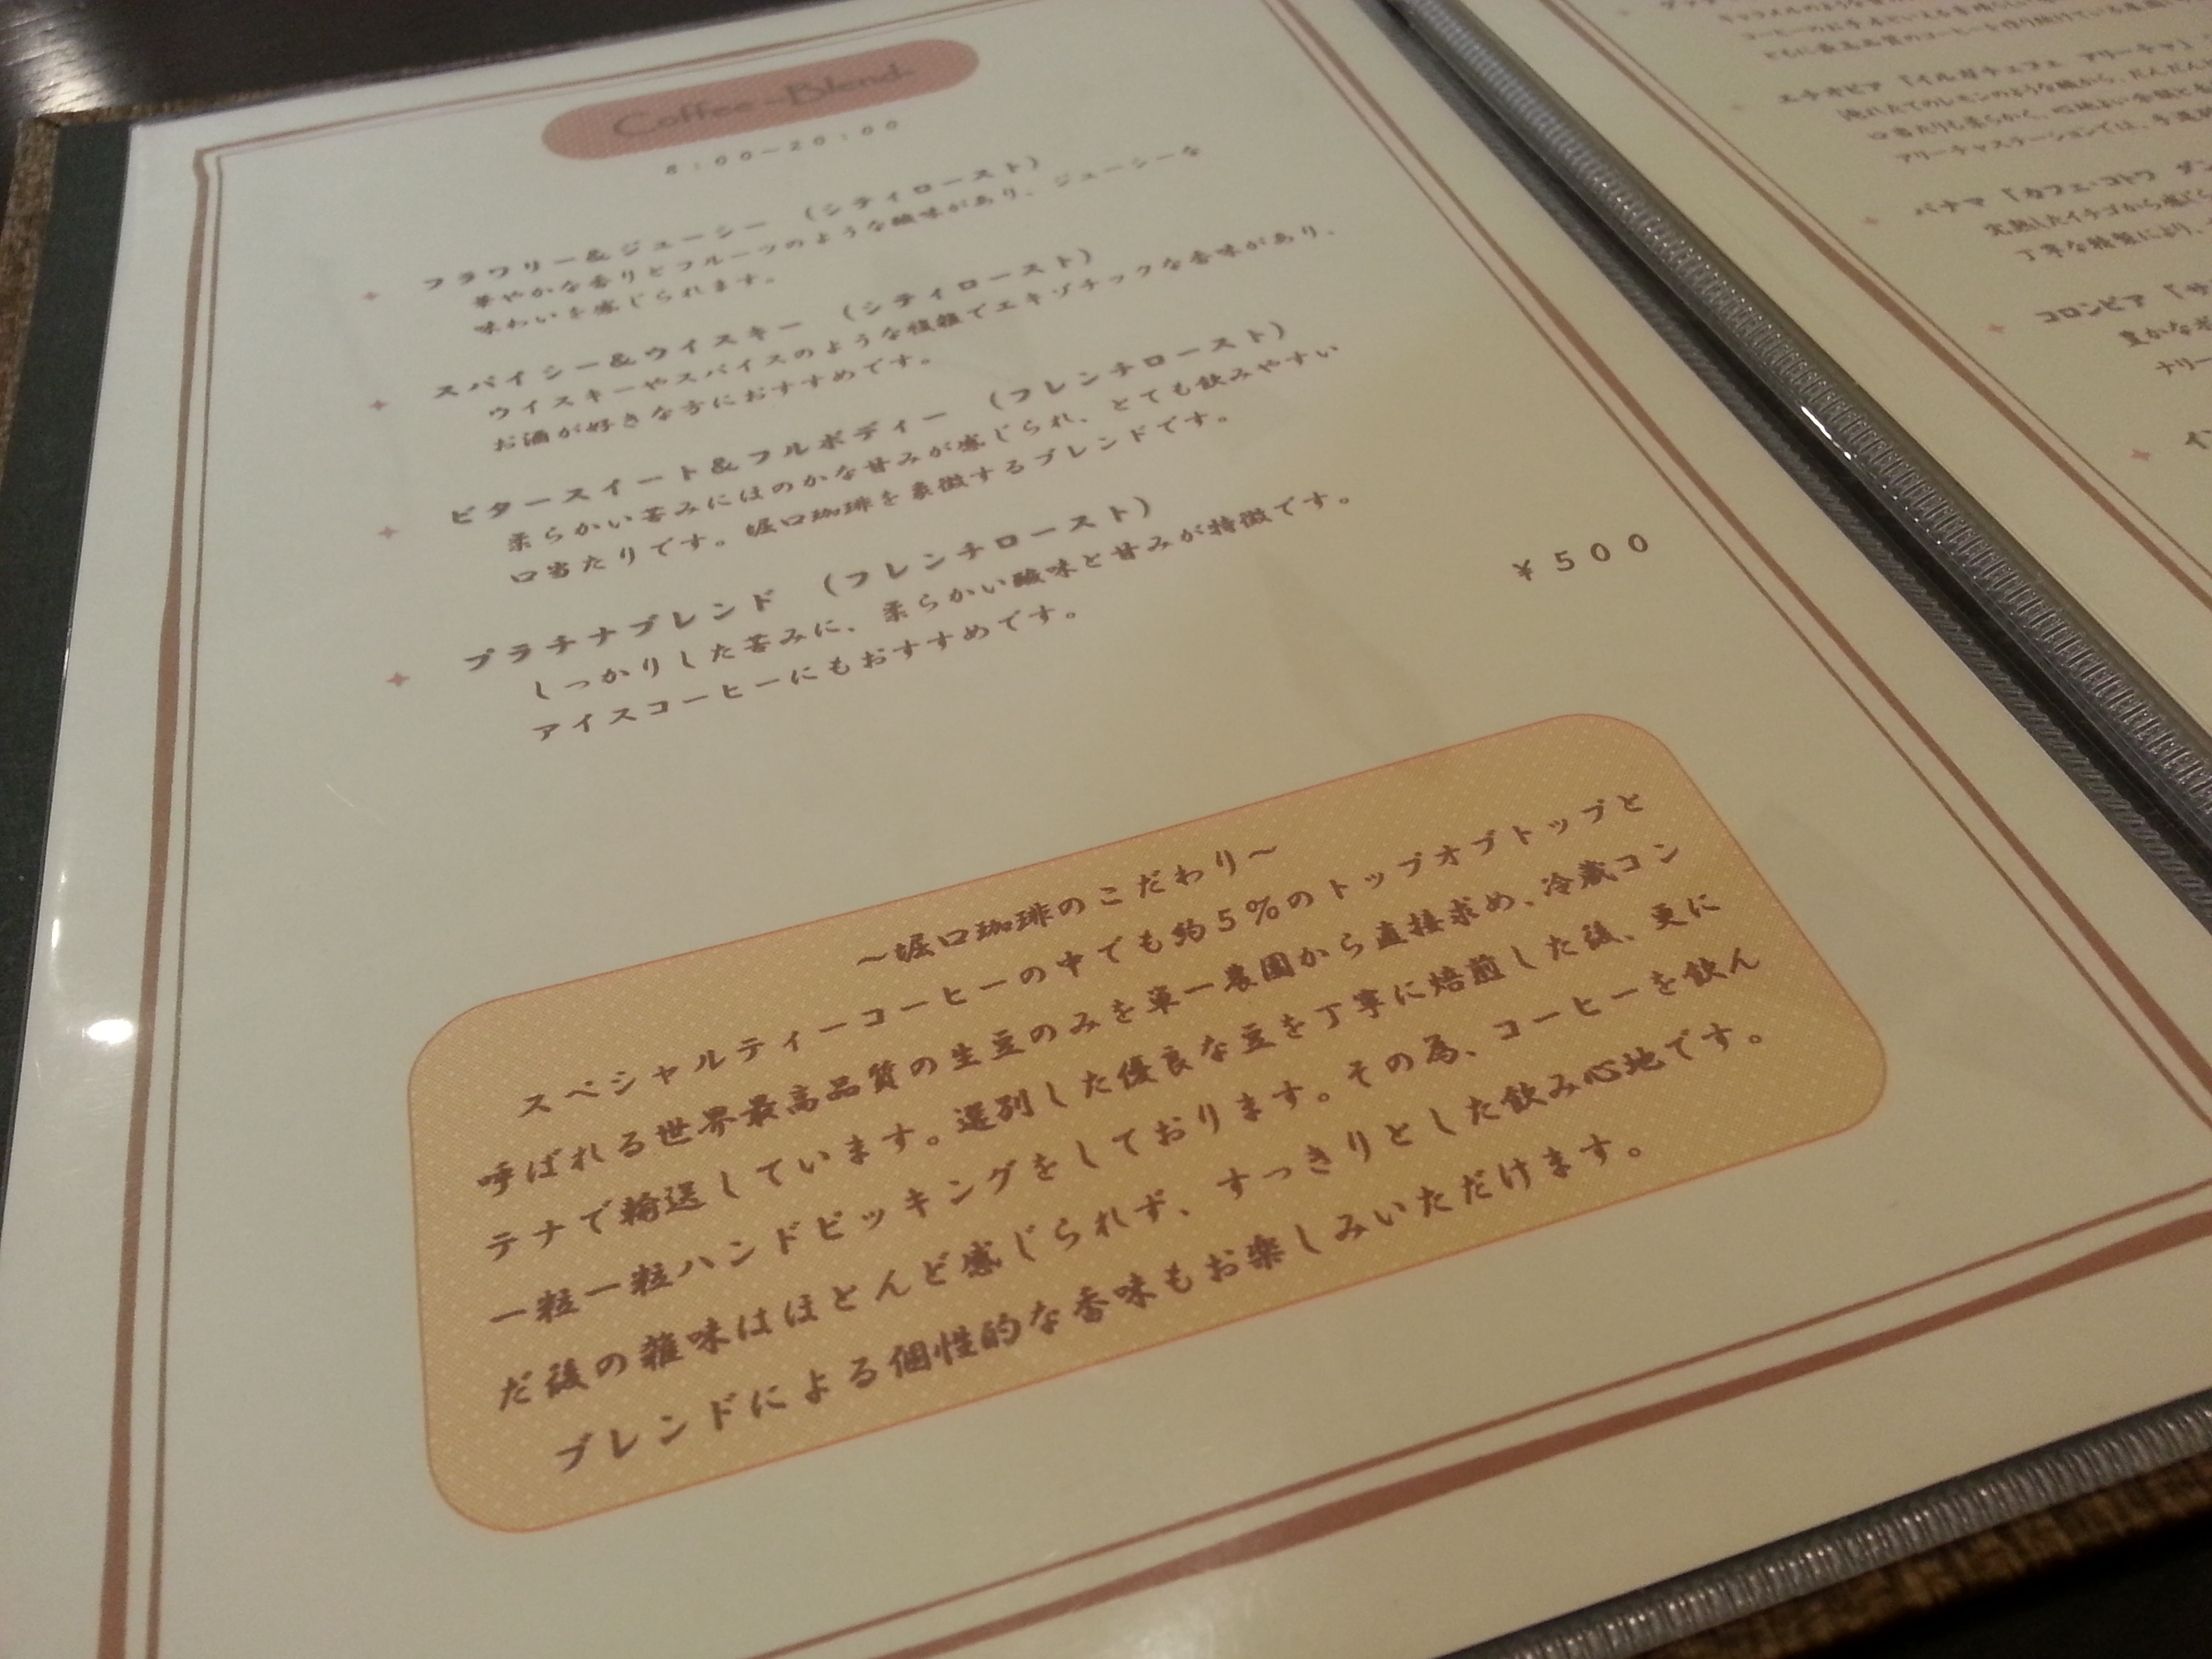 Coffee-Blend
8:00－20:00
フラワリー＆ジューシー （シティロースト）
華やかな香りとフルーツのような酸味があり、ジューシーな
味わいを感じられます。
スパイシー＆ウイスキー （シティロースト）
ウイスキーやスパイスのような複雑でエキゾチックな香味があり、
お酒が好きな方におすすめです。
ビタースイート＆フルボディー （フレンチロースト）
柔らかい苦みにほのかな甘みが感じられ、とても飲みやすい
口当たりです。堀口珈琲を象徴するブレンドです。
プラチナブレンド （フレンチロースト）
しっかりした苦みに、柔らかい酸味と甘みが特徴です。
アイスコーヒーにもおすすめです。
￥５００
～堀口珈琲のこだわり～
スペシャルティーコーヒーの中でも約５％のトップオブトップと
呼ばれる世界最高品質の生豆のみを単一農園から直接求め、冷蔵コン
テナで輸送しています。選別した優良な豆を丁寧に焙煎した後、更に
一粒一粒ハンドピッキングをしております。その為、コーヒーを飲ん
だ後の雑味はほとんど感じられず、すっきりとした飲み心地です。
ブレンドによる個性的な香味もお楽しみいただけます。
キャラメルのような
ともに最高品質のコーヒーを作り続けている農園
エチオピア 「イルガチェフェ アリーチャ」
口当たりも柔らかく、
アリーチャステーションでは、
パナマ 「カフェ・コトワ
完熟したイチゴから感じ
丁寧な精製により、
コロンビア 「サ
豊かな
ナリー